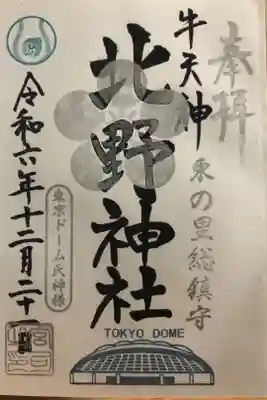 奉拝
牛天神
東の里総鎮守
北野神社
東京ドーム氏神様
令和六年十二月二十一日
TOKYO DOME